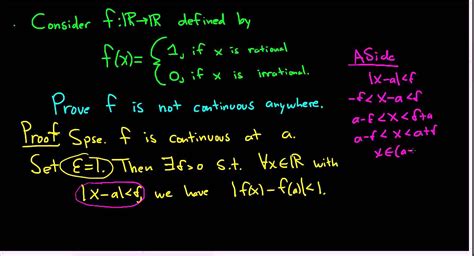 Consider f:ℝ→ℝ defined by
f(x)= { 1, if x is rational
0, if x is irrational.
Prove f is not continuous anywhere.
Proof Spse. f is continuous at a.
Set ε=1. Then ∃δ>0 s.t. ∀x∈ℝ with
|x-a|<δ, we have |f(x)-f(a)|<1.
ASide
|x-a|<δ
-δ<x-a<δ
a-δ<x<δ+a
a-δ<x<a+δ
x∈(a-